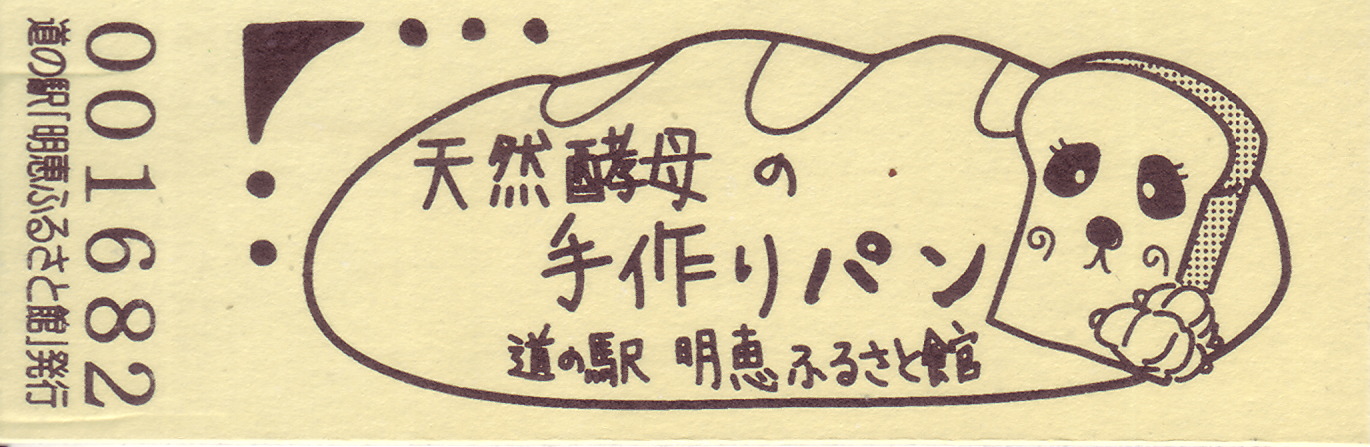 天然酵母の
手作りパン
道の駅 明恵ふるさと館
001682
道の駅「明恵ふるさと館」発行